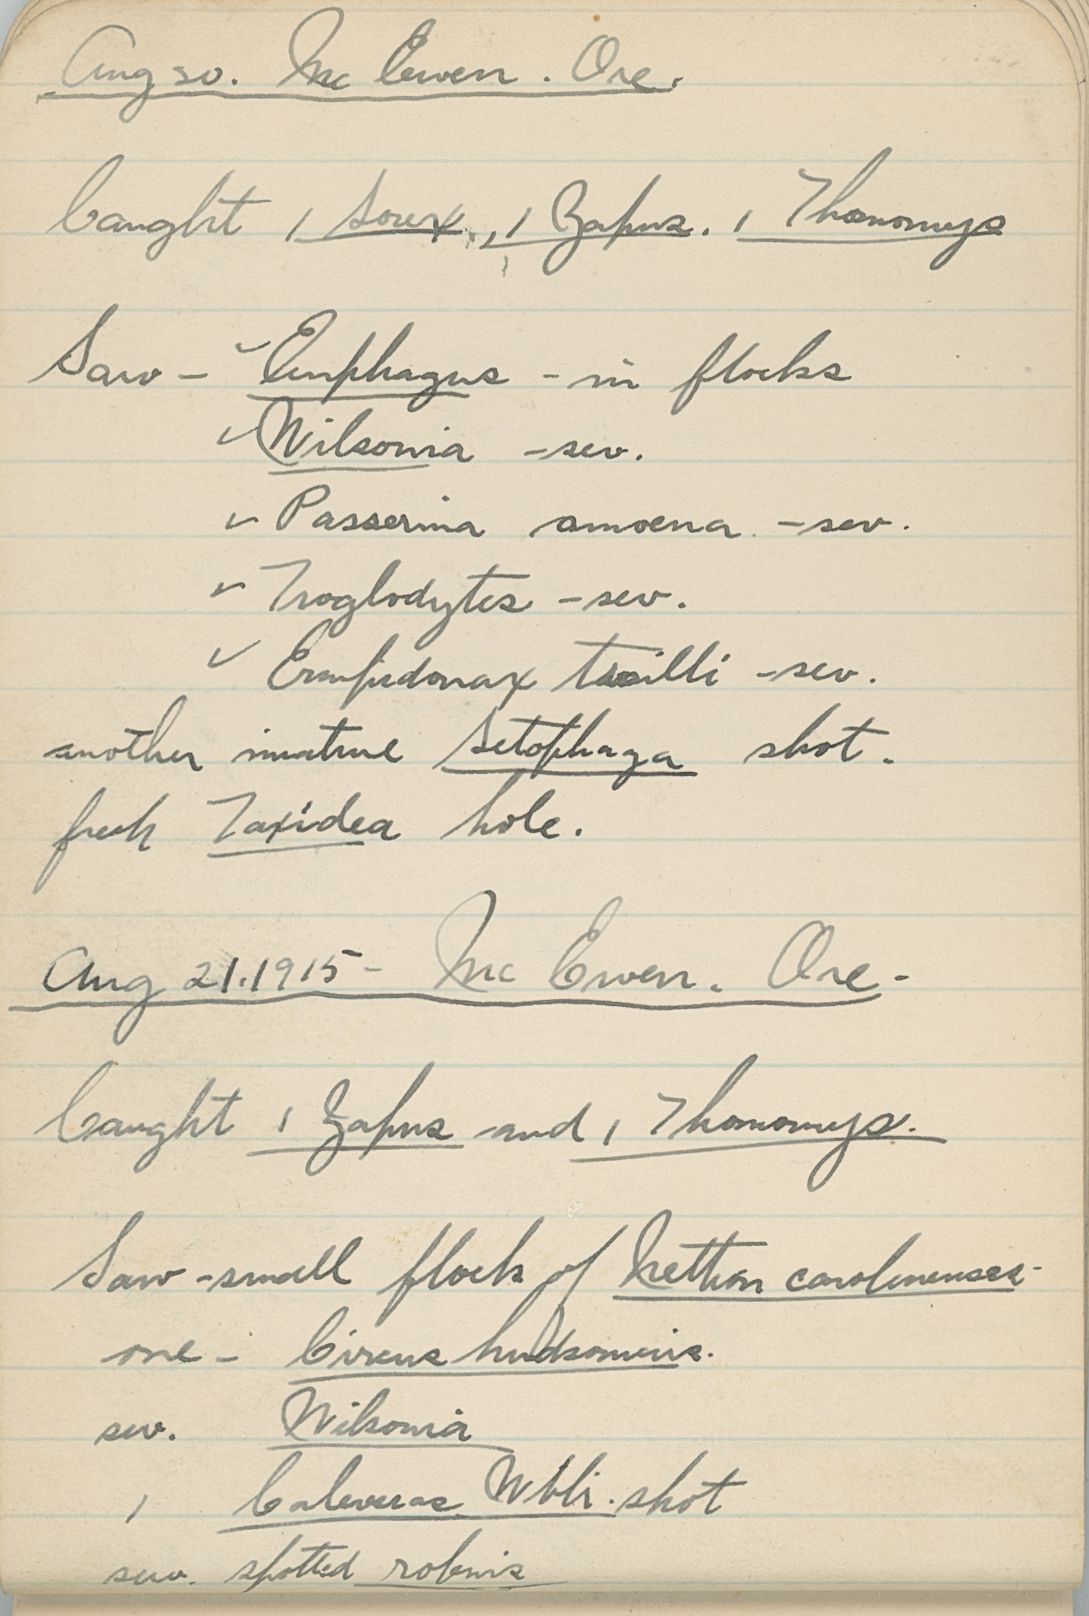 Aug 20. Mc Ewen. Ore.
Caught 1 Sorex, 1 Zapus. 1 Thomomys
Saw - Euphagus - in flocks
Wilsonia - sev.
Passerina amoena - sev.
Troglodytes - sev.
Empidonax trailli - sev.
another imature Setophaga shot.
fresh Taxidea hole.
Aug 21. 1915 - Mc Ewen. Ore -
Caught 1 Zapus and 1 Thomomys.
Saw - small flock of Nettion carolinenses -
one - Circus hudsonius.
sev. Wilsonia
1 Calaveras Wblr. shot
sev. spotted robins